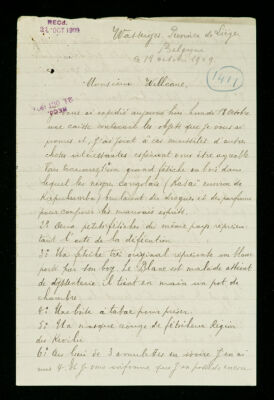 RECD.
21 OCT 1909
Wasseiges, Province de Liège,
Belgique
le 19 octobre 1909
1411
Monsieur Wellcome,
Je vous ai expédié aujourd'hui lundi 18 octobre
une caisse contenant les objets que je vous ai
promis et j'ai joint à ces ustensiles d'autres
choses intéressantes espérant vous être agréable
un grand fétiche en bois dans
lequel les nègres Congolais (Kasai environ de
) brulaient des drogues et des parfums
pour les mauvais esprits.
2: Deux petits fétiches du même pays représen
tant l'acte de la défécation
3: Un fétiche très original représente un blanc
porté par son boy. Le Blanc est malade atteint
de dyssenterie. Il tient en main un pot de
chambre.
4: Une boîte à tabac pour priser.
5: Un masque rouge de féticheur Région
du
6: Au lieu de 3 amulettes en ivoire j'en ai
mis 4. Et je vous informe que j'en possède encore